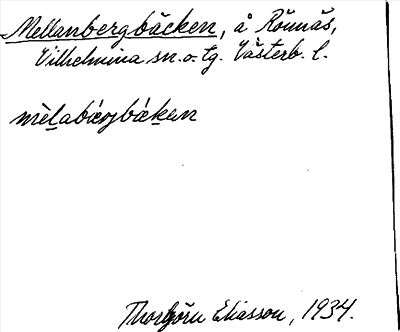 Mellanbergbäcken, å Rönnäs,
Vilhelmina sn. o. tg. Västerb. l.
mèlabærjbæken
Thorbjörn Eliasson, 1934.